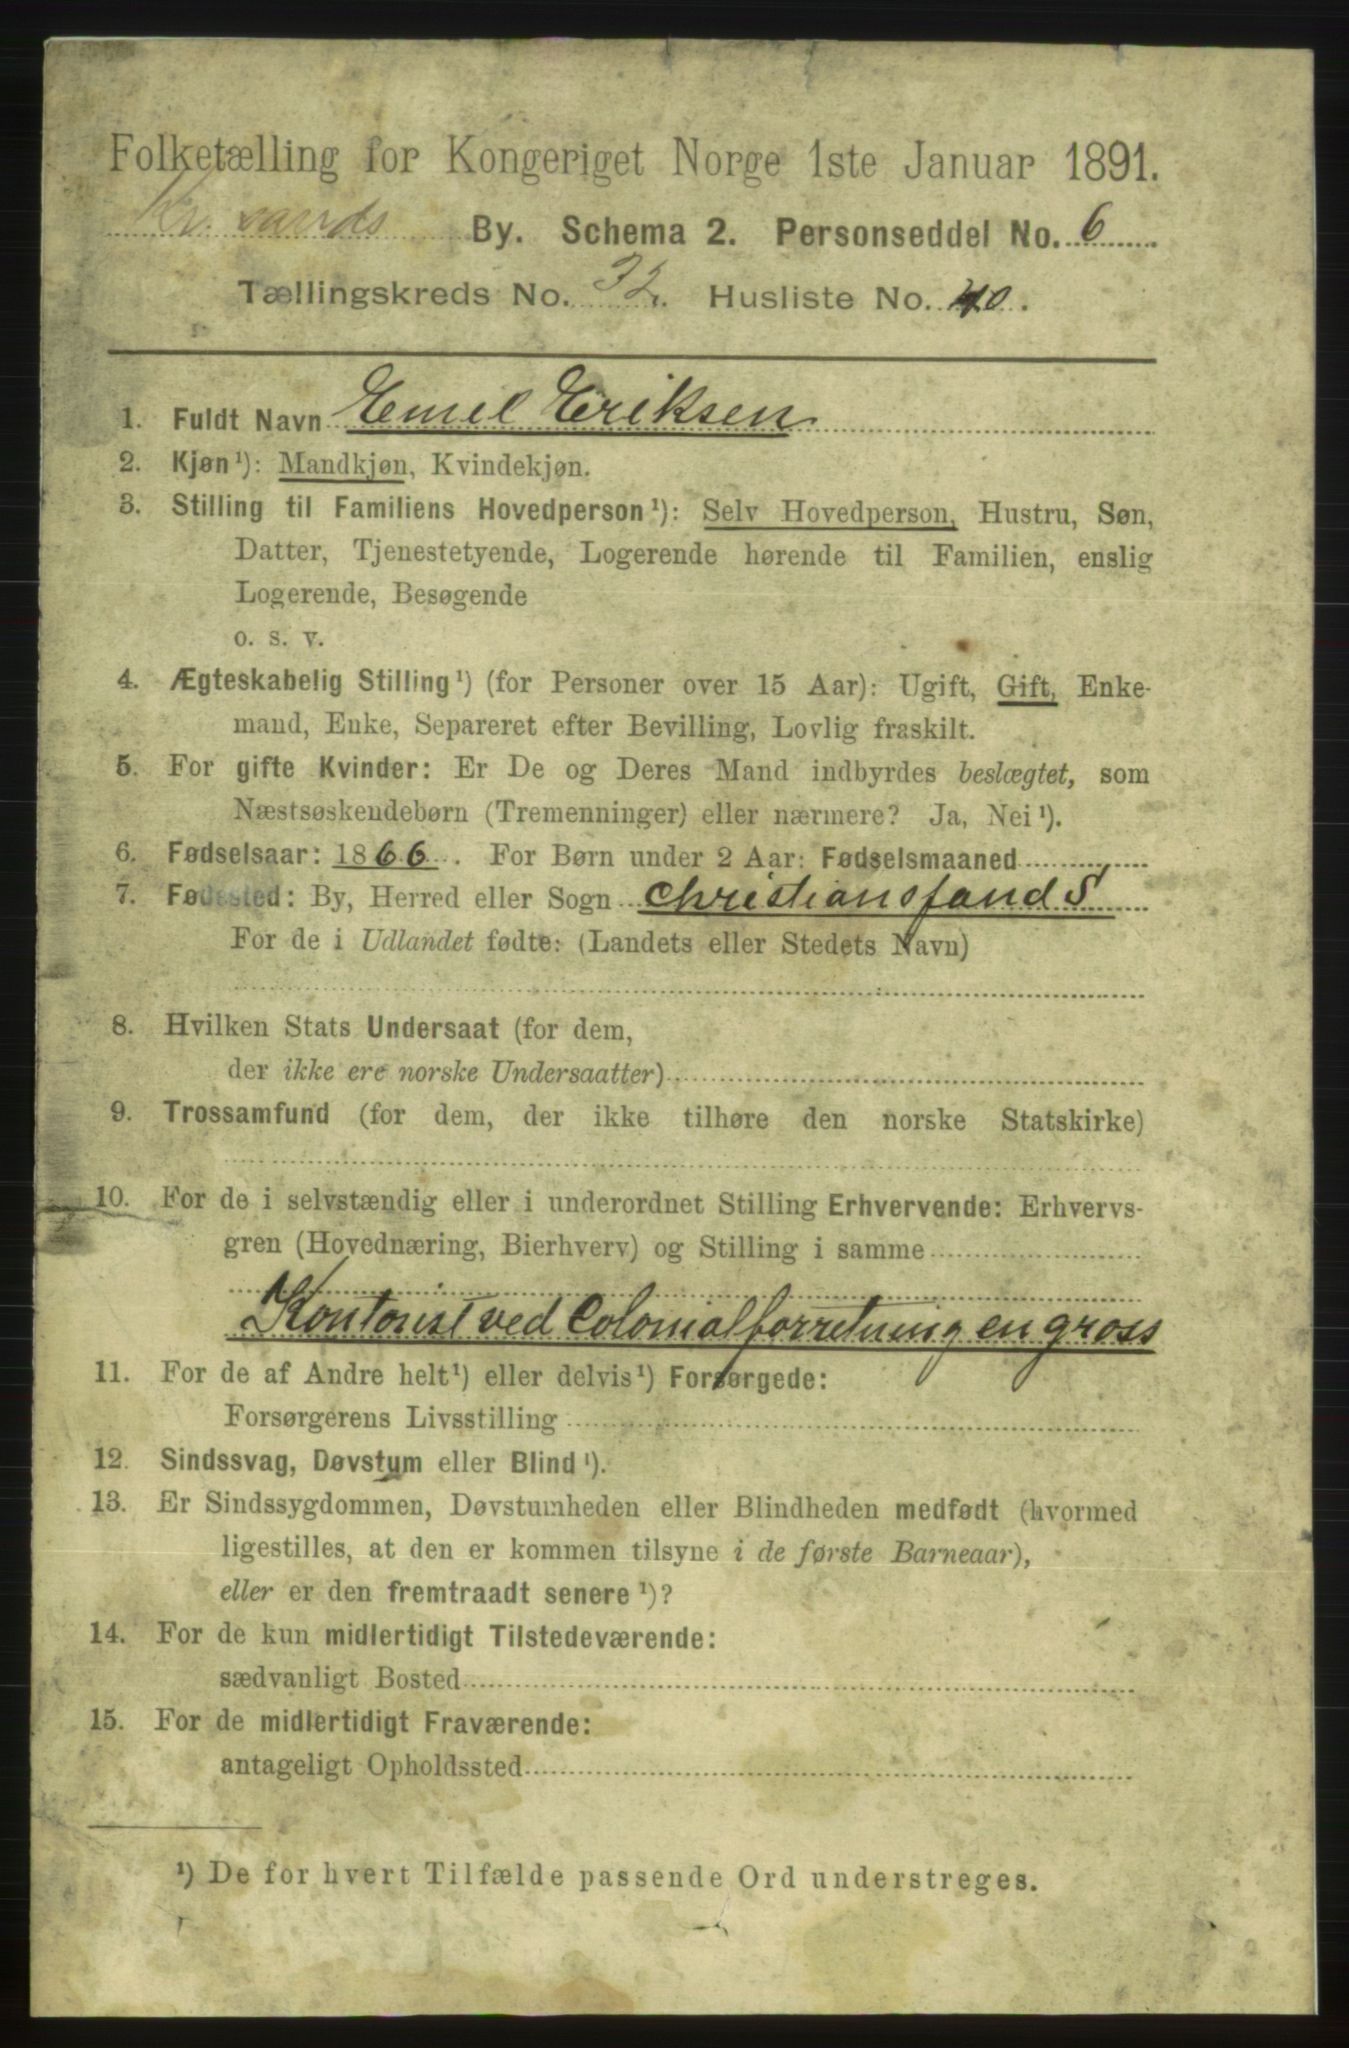 Folketælling for Kongeriget Norge 1ste Januar 1891.
Kr.sands By. Schema 2. Personseddel No. 6
Tællingskreds No. 32. Husliste No. 40.
1. Fuldt Navn Emil Eriksen
2. Kjøn¹): Mandkjøn, Kvindekjøn.
3. Stilling til Familiens Hovedperson¹): Selv Hovedperson, Hustru, Søn,
Datter, Tjenestetyende, Logerende hørende til Familien, enslig
Logerende, Besøgende
o. s. v.
4. Ægteskabelig Stilling¹) (for Personer over 15 Aar): Ugift, Gift, Enke-
mand, Enke, Separeret efter Bevilling, Lovlig fraskilt.
5. For gifte Kvinder: Er De og Deres Mand indbyrdes beslægtet, som
Næstsøskendebørn (Tremenninger) eller nærmere? Ja, Nei¹).
6. Fødselsaar: 1866. For Børn under 2 Aar: Fødselsmaaned
7. Fødested: By, Herred eller Sogn Christianssand S
For de i Udlandet fødte: (Landets eller Stedets Navn)
8. Hvilken Stats Undersaat (for dem,
der ikke ere norske Undersaatter)
9. Trossamfund (for dem, der ikke tilhøre den norske Statskirke)
10. For de i selvstændig eller i underordnet Stilling Erhvervende: Erhvervs-
gren (Hovednæring, Bierhverv) og Stilling i samme
Kontorist ved Colonialforretning en gross
11. For de af Andre helt¹) eller delvis¹) Forsørgede:
Forsørgerens Livsstilling
12. Sindssvag, Døvstum eller Blind¹).
13. Er Sindssygdommen, Døvstumheden eller Blindheden medfødt (hvormed
ligestilles, at den er kommen tilsyne i de første Barneaar),
eller er den fremtraadt senere¹)?
14. For de kun midlertidigt Tilstedeværende:
sædvanligt Bosted
15. For de midlertidigt Fraværende:
antageligt Opholdssted
¹) De for hvert Tilfælde passende Ord understreges.